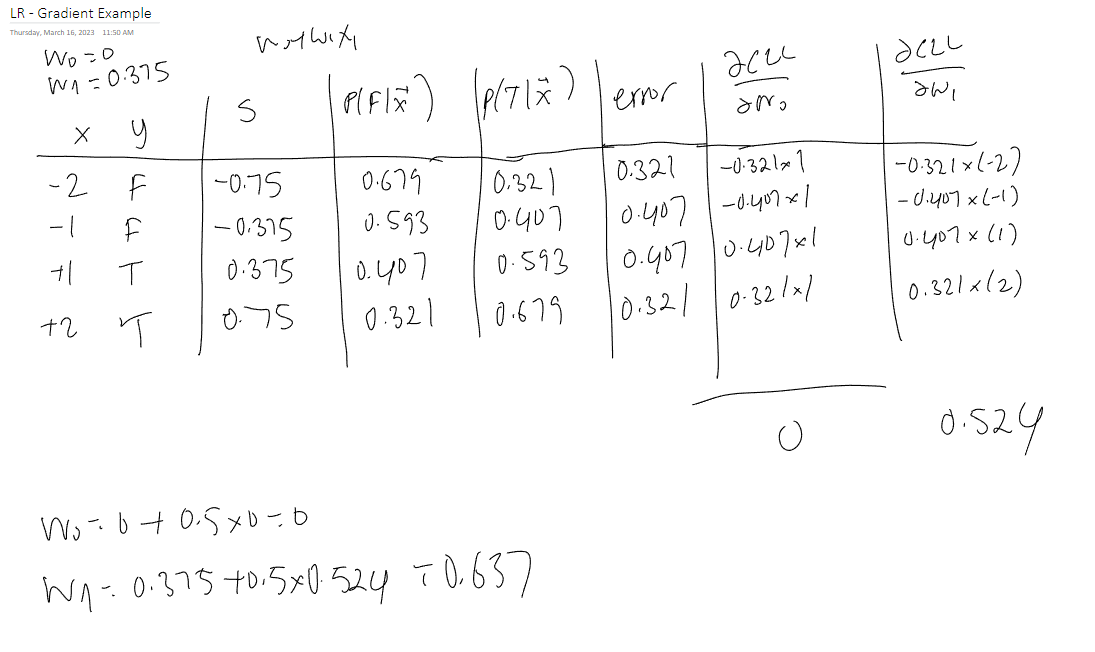 LR - Gradient Example
Thursday, March 16, 2023 11:50 AM
W₀ = 0
W₁ = 0.375
W₀+W₁X₁
x y S P(F|x⃗) P(T|x⃗) error ∂CLL/∂W₀ ∂CLL/∂W₁
-2 F -0.75 0.679 0.321 0.321 -0.321×1 -0.321×(-2)
-1 F -0.375 0.593 0.407 0.407 -0.407×1 -0.407×(-1)
+1 T 0.375 0.407 0.593 0.407 0.407×1 0.407×(1)
+2 T 0.75 0.321 0.679 0.321 0.321×1 0.321×(2)
0 0.524
W₀ = 0 + 0.5×0 = 0
W₁ = 0.375 + 0.5×0.524 = 0.637